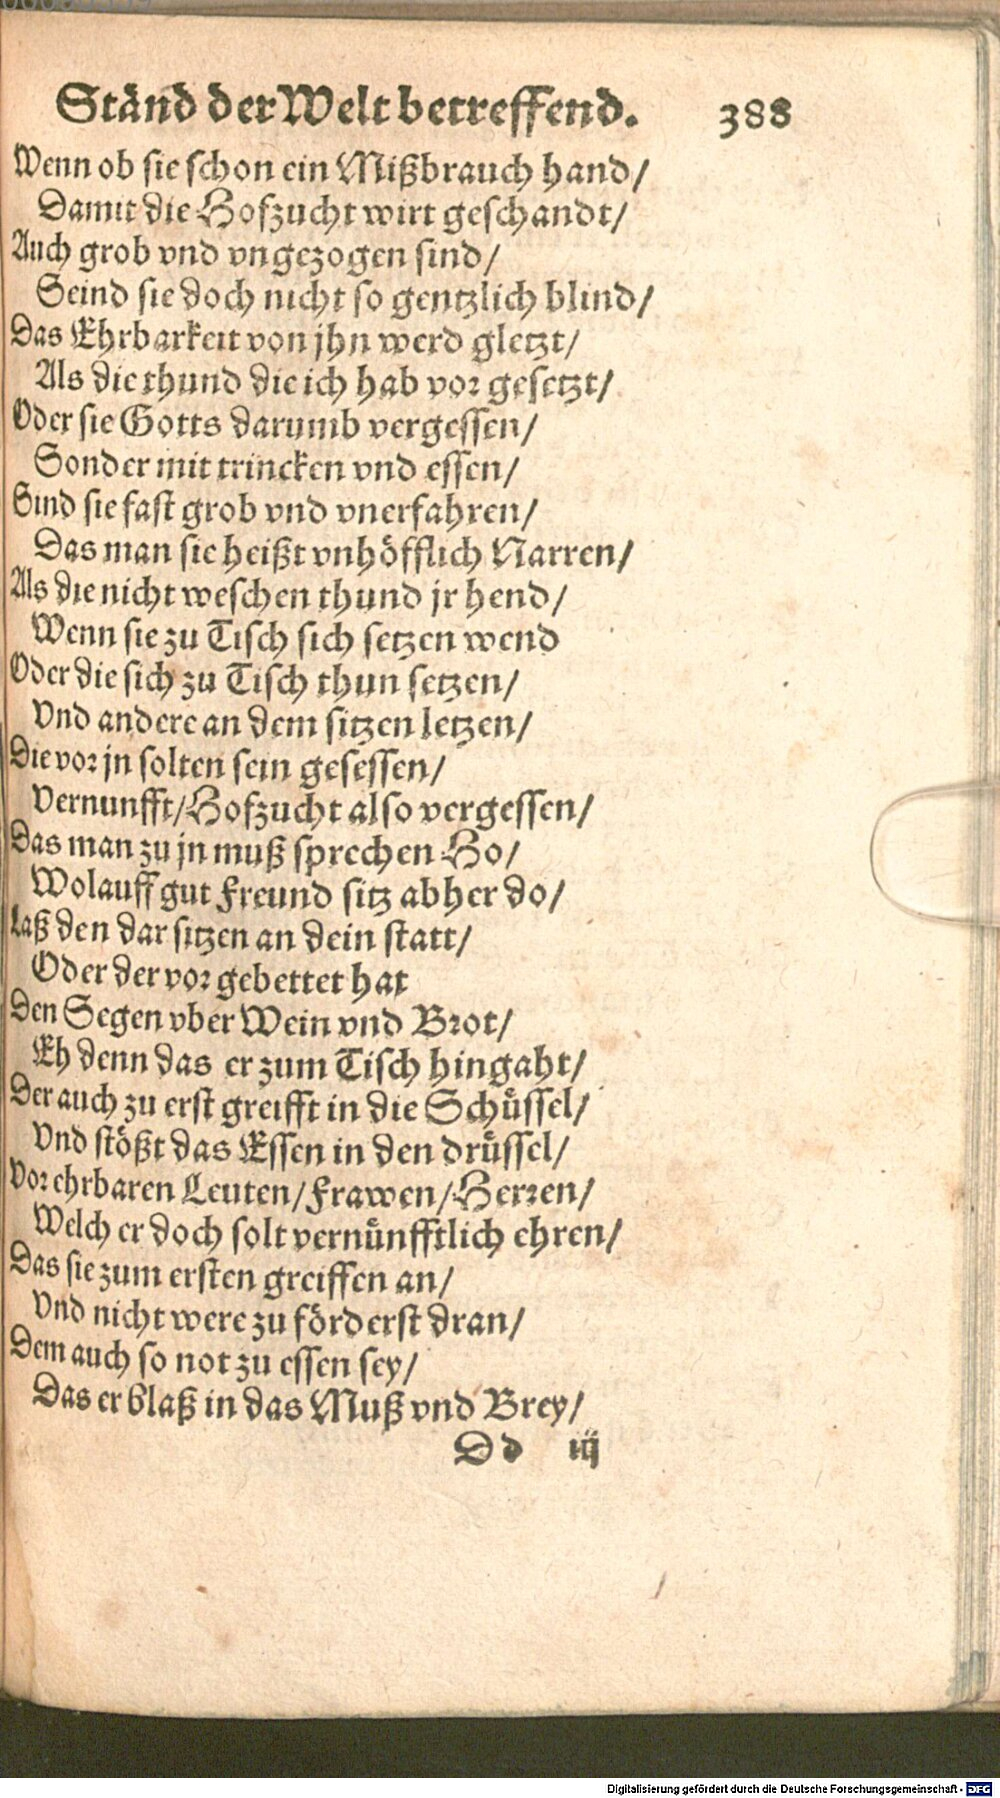 Ständ der Welt betreffend. 388
Wenn ob sie schon ein Mißbrauch hand/
Damit die Hofzucht wirt geschandt/
Auch grob vnd vngezogen sind/
Seind sie doch nicht so gentzlich blind/
Das Ehrbarkeit von jhn werd gletzt/
Als die thund die ich hab vor gesetzt/
Oder sie Gotts darumb vergessen/
Sonder mit trincken vnd essen/
Sind sie fast grob vnd vnerfahren/
Das man sie heißt vnhöfflich Narren/
Als die nicht weschen thund jr hend/
Wenn sie zu Tisch sich setzen wend
Oder die sich zu Tisch thun setzen/
Vnd andere an dem sitzen letzen/
Die vor jn solten sein gesessen/
Vernunfft/Hofzucht also vergessen/
Das man zu jn muß sprechen Ho/
Wolauff gut Freund sitz abher do/
Laß den dar sitzen an dein statt/
Oder der vor gebettet hat
Den Segen vber Wein vnd Brot/
Eh denn das er zum Tisch hingaht/
Der auch zu erst greifft in die Schüssel/
Vnd stößt das Essen in den drüssel/
Vor ehrbaren Leuten/Frawen/Herren/
Welch er doch solt vernünfftlich ehren/
Das sie zum ersten greiffen an/
Vnd nicht were zu förderst dran/
Dem auch so not zu essen sey/
Das er blaß in das Muß vnd Brey/
Dd iij
Digitalisierung gefördert durch die Deutsche Forschungsgemeinschaft - DFG